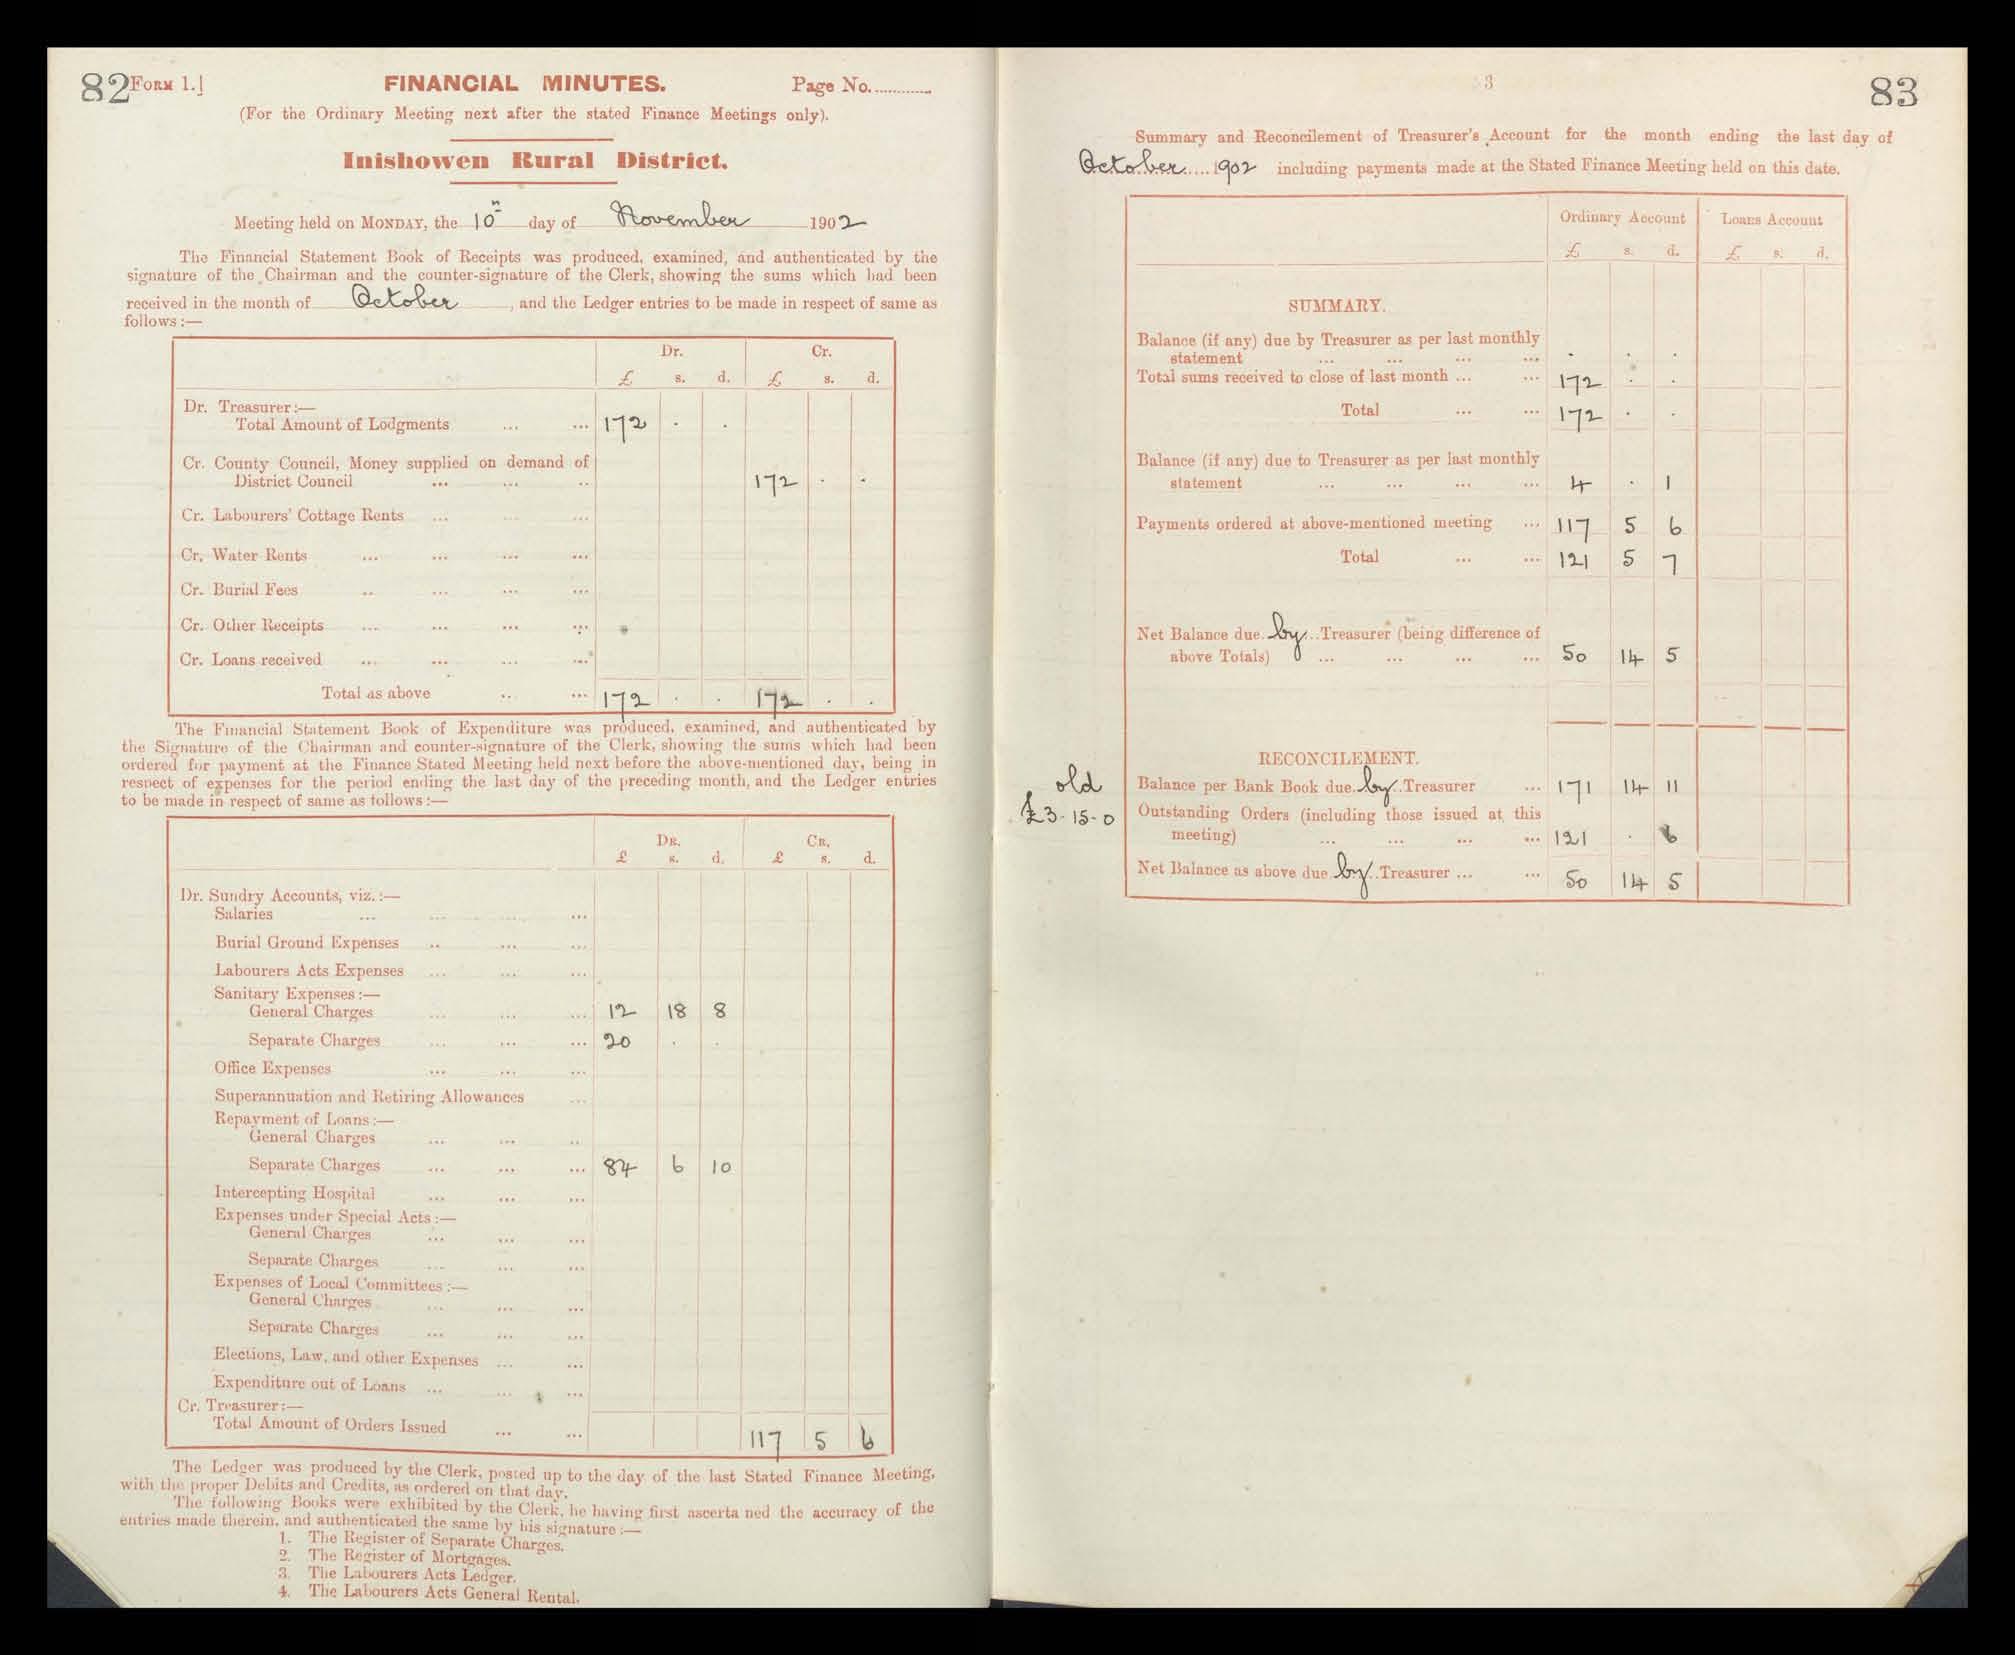 82 FORM 1. FINANCIAL MINUTES. Page No.............
(For the Ordinary Meeting next after the stated Finance Meetings only).
Inishowen Rural District.
Meeting held on MONDAY, the 10th day of November 1902
The Financial Statement Book of Receipts was produced, examined, and authenticated by the
signature of the Chairman and the counter-signature of the Clerk, showing the sums which had been
received in the month of October, and the Ledger entries to be made in respect of same as
follows :—
Dr. Cr.
£ s. d. £ s. d.
Dr. Treasurer:—
Total Amount of Lodgments ... ... 172 . .
Cr. County Council, Money supplied on demand of
District Council ... ... .. 172 . .
Cr. Labourers' Cottage Rents ... ... ...
Cr. Water Rents ... ... ... ...
Cr. Burial Fees .. ... ... ...
Cr. Other Receipts ... ... ... ...
Cr. Loans received ... ... ... ...
Total as above .. ... 172 . . 172 . .
The Financial Statement Book of Expenditure was produced, examined, and authenticated by
the Signature of the Chairman and counter-signature of the Clerk, showing the sums which had been
ordered for payment at the Finance Stated Meeting held next before the above-mentioned day, being in
respect of expenses for the period ending the last day of the preceding month, and the Ledger entries
to be made in respect of same as follows :—
DR. CR.
£ s. d. £ s. d.
Dr. Sundry Accounts, viz. :—
Salaries ... ... ... ...
Burial Ground Expenses .. ... ...
Labourers Acts Expenses ... ... ...
Sanitary Expenses :—
General Charges ... ... ... 12 18 8
Separate Charges ... ... ... 20 . .
Office Expenses ... ... ...
Superannuation and Retiring Allowances ...
Repayment of Loans :—
General Charges ... ... ..
Separate Charges ... ... ... 84 6 10
Intercepting Hospital ... ... ...
Expenses under Special Acts :—
General Charges ... ... ...
Separate Charges ... ... ...
Expenses of Local Committees :—
General Charges ... ... ...
Separate Charges ... ... ...
Elections, Law, and other Expenses ... ...
Expenditure out of Loans ... ... ...
Cr. Treasurer :—
Total Amount of Orders Issued ... ... 117 5 6
The Ledger was produced by the Clerk, posted up to the day of the last Stated Finance Meeting,
with the proper Debits and Credits, as ordered on that day.
The following Books were exhibited by the Clerk, he having first ascerta ned the accuracy of the
entries made therein, and authenticated the same by his signature :—
1. The Register of Separate Charges.
2. The Register of Mortgages.
3. The Labourers Acts Ledger.
4. The Labourers Acts General Rental.
3 83
Summary and Reconcilement of Treasurer's Account for the month ending the last day of
October.....1902 including payments made at the Stated Finance Meeting held on this date.
Ordinary Account Loans Account
£ s. d. £ s. d.
SUMMARY.
Balance (if any) due by Treasurer as per last monthly
statement ... ... ... ... . . .
Total sums received to close of last month ... ... 172 . .
Total ... ... 172 . .
Balance (if any) due to Treasurer as per last monthly
statement ... ... ... ... 4 . 1
Payments ordered at above-mentioned meeting ... 117 5 6
Total ... ... 121 5 7
Net Balance due by Treasurer (being difference of
above Totals) ... ... ... ... 50 14 5
RECONCILEMENT.
old Balance per Bank Book due by Treasurer ... 171 14 11
£3-15-0 Outstanding Orders (including those issued at this
meeting) ... ... ... ... 121 . 6
Net Balance as above due by Treasurer ... ... 50 14 5